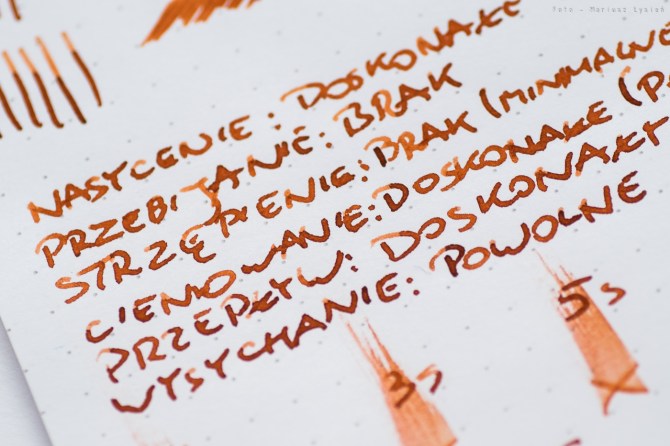 Foto - Mariusz Łysiak
NASYCENIE: DOSKONAŁE
PRZEBIJANIE: BRAK
STRZĘPIENIE: BRAK (MINIMALNE
CIENIOWANIE: DOSKONAŁE (
PRZEPŁYW: DOSKONAŁY
WYSYCHANIE: POWOLNE
5s
3s